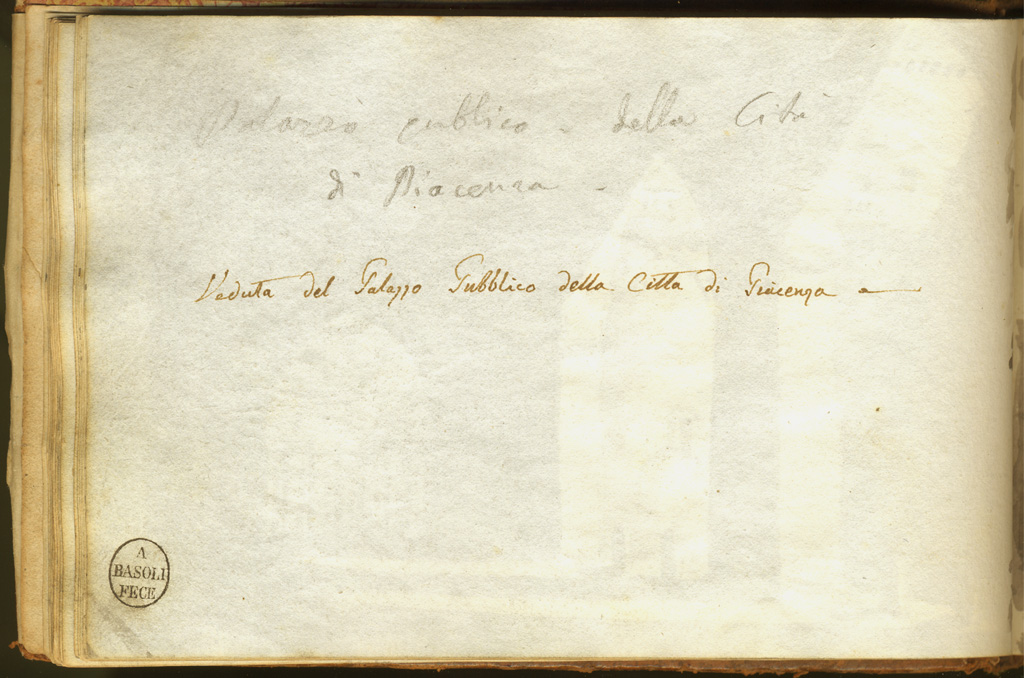 Palazzo publico - della Citá
di Piacenza -
Veduta del Palazzo Pubblico della Città di Piacenza a
A
BASOLI
FECE